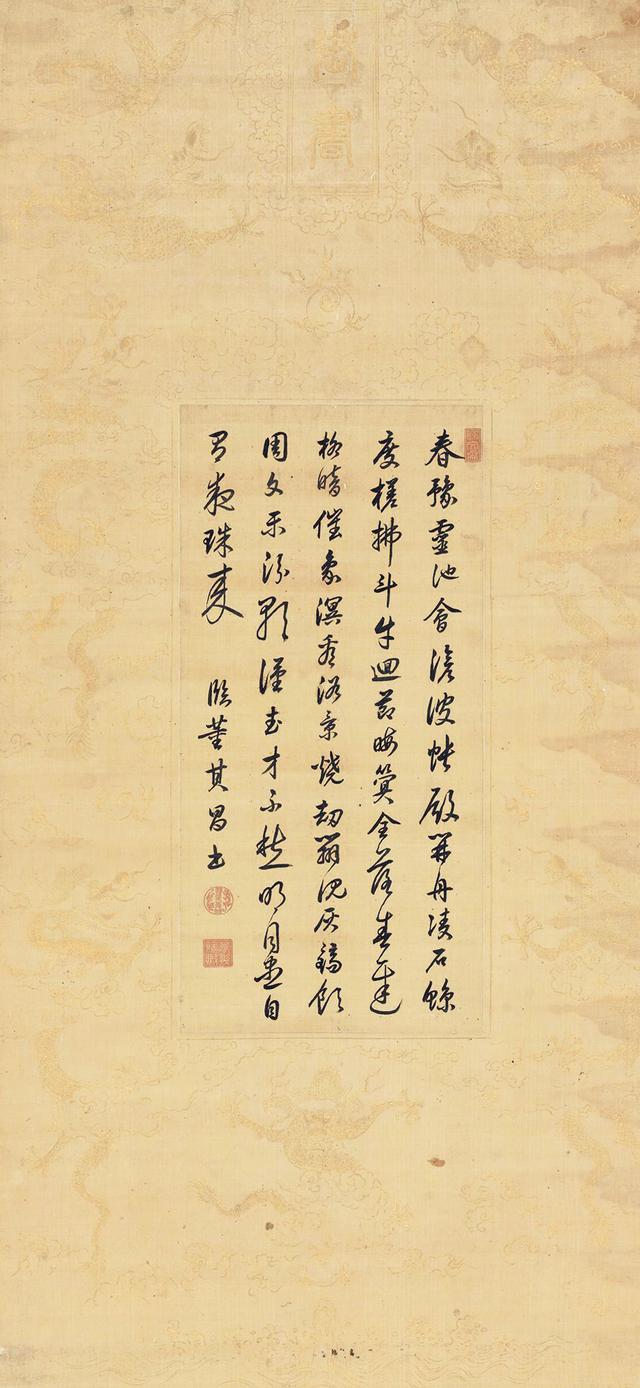 御書
春豫靈池會滄波帳殿開舟凌石鯨
度槎拂斗牛迴節晦蓂全落春遲
柳暗催象溟看浴景燒劫辨沉灰鎬飲
周文樂汾歌漢武才不愁明月盡自
有夜珠來
臨董其昌書